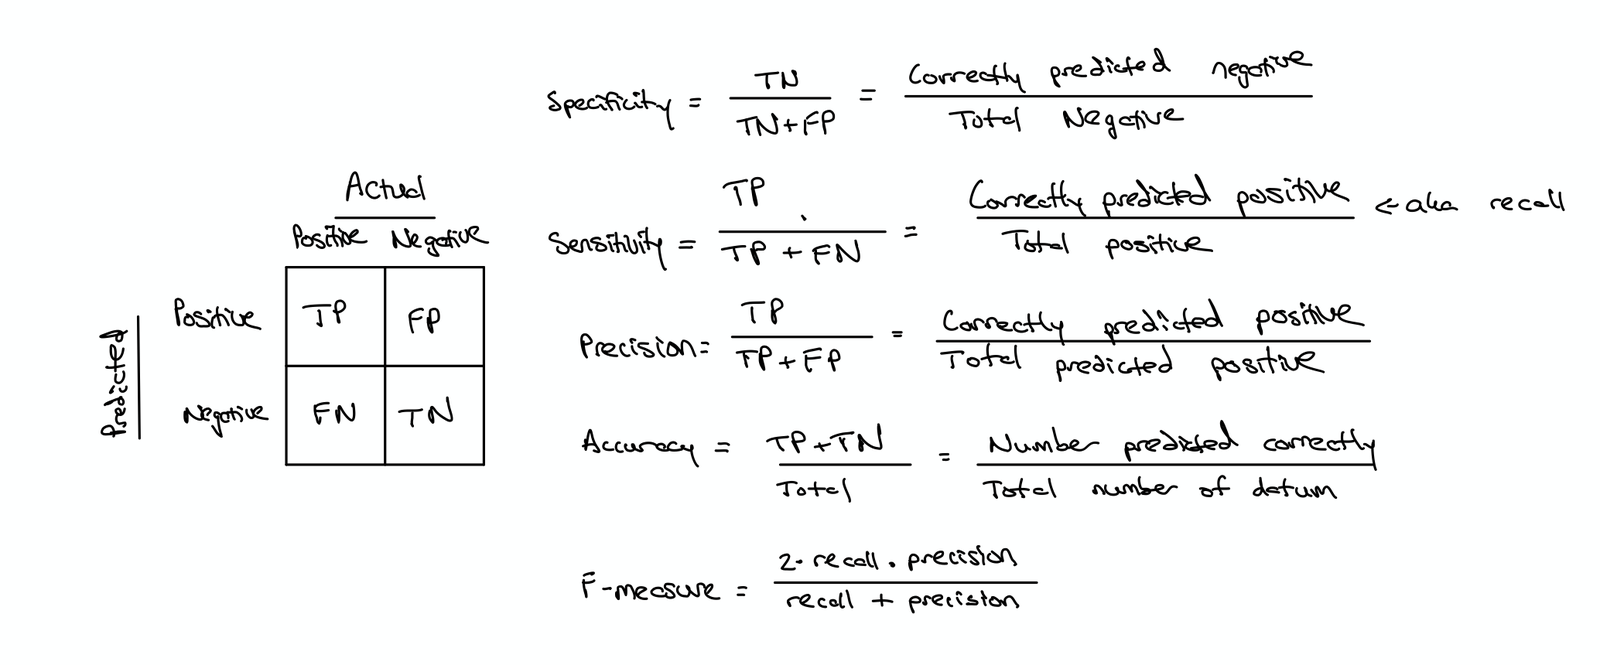 Actual
Positive Negative
Predicted
Positive TP FP
Negative FN TN
Specificity = TN / TN+FP = Correctly predicted negative / Total Negative
Sensitivity = TP / TP + FN = Correctly predicted positive / Total positive ← aka recall
Precision = TP / TP+FP = Correctly predicted positive / Total predicted positive
Accuracy = TP+TN / Total = Number predicted correctly / Total number of datum
F-measure = 2· recall · precision / recall + precision